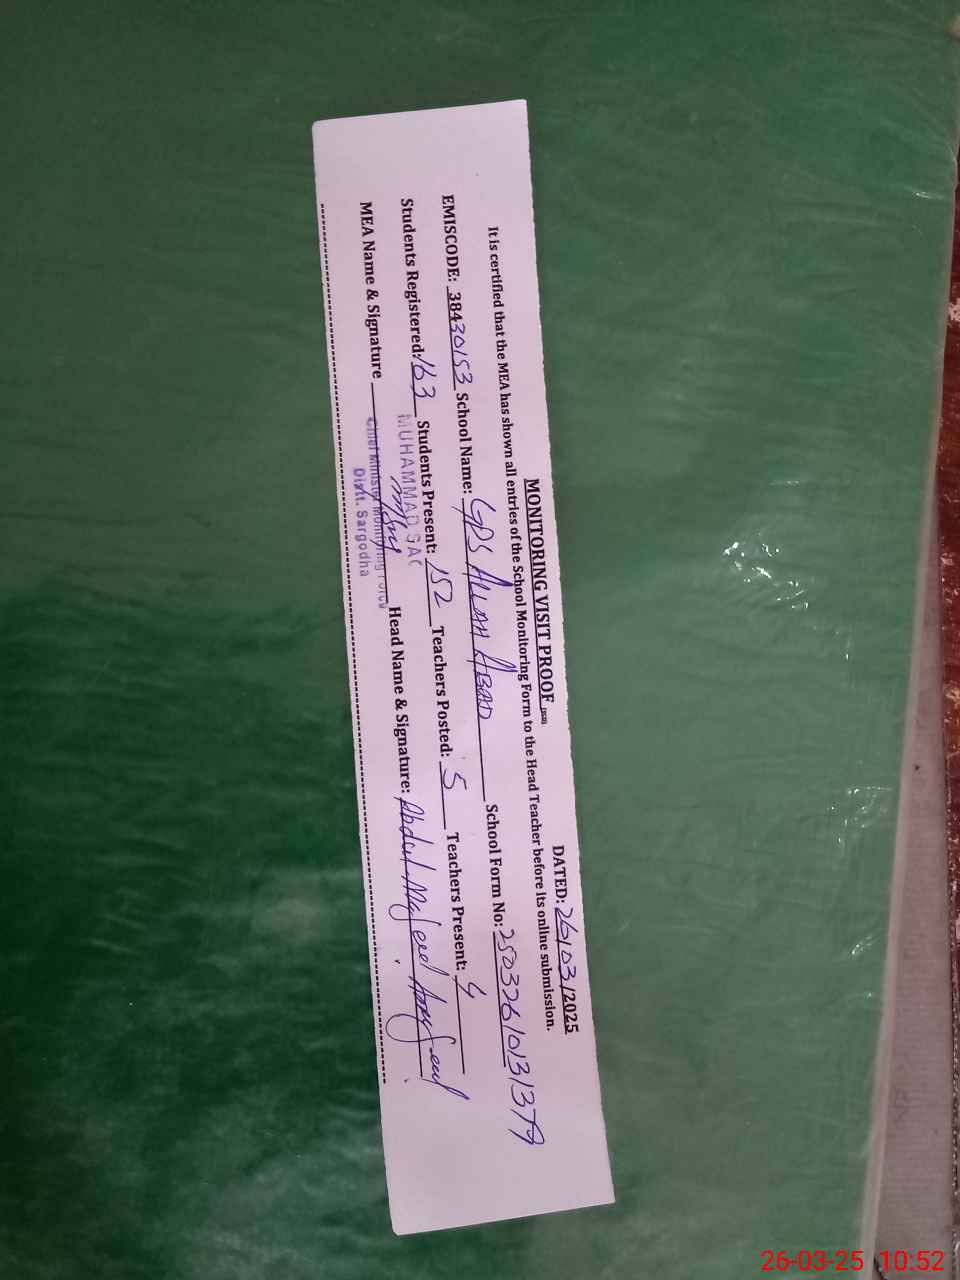 MONITORING VISIT PROOF DATED: 26/03/2025
It is certified that the MEA has shown all entries of the School Monitoring Form to the Head Teacher before its online submission.
EMISCODE: 38430153 School Name: GPS ALLAH ABAD School Form No:
Students Registered: 163 Students Present: 152 Teachers Posted: 5 Teachers Present: 4
MUHAMMAD
MEA Name & Signature Head Name & Signature: Abdul Majeed
Chief Minister Monitoring Force
Distt. Sargodha
26-03-25 10:52